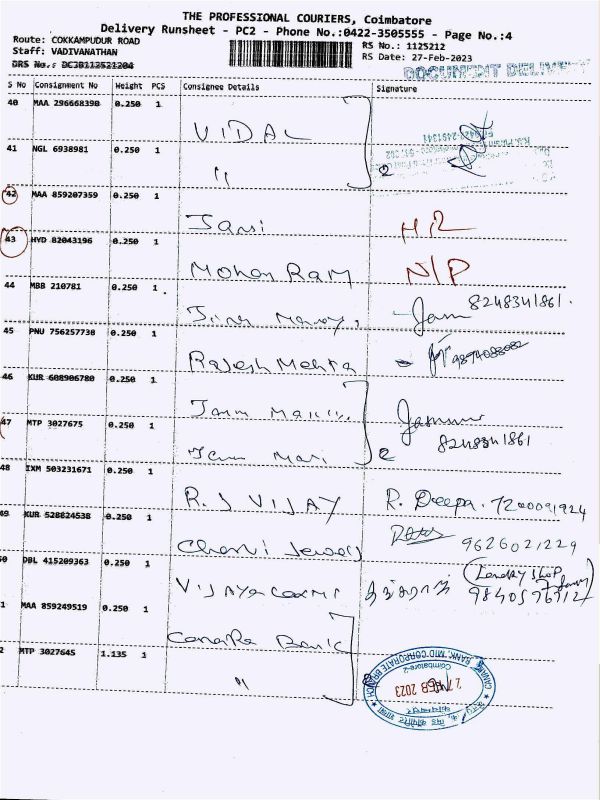 THE PROFESSIONAL COURIERS, Coimbatore
Delivery Runsheet - PC2 - Phone No.:0422-3505555 - Page No.:4
Route: COKKAMPUDUR ROAD
RS No.: 1125212
Staff: VADIVANATHAN
RS Date: 27-Feb-2023
DRS No.: DCJB112521204
DOCUMENT DELIVE
S No Consignment No Weight PCS Consignee Details Signature
40 MAA 296668390 0.250 1
VIDAL
41 NGL 6938981 0.250 1
"
2
42 MAA 859207359 0.250 1
Jansi
43 HYD 82043196 0.250 1
Mohan Ram N/P
44 MBB 210781 0.250 1
8248341861.
45 PNU 756257738 0.250 1
Rajesh Mehta
46 KUR 608906780 0.250 1
47 MTP 3027675 0.250 1
2 8248341861
48 IXM 503231671 0.250 1
R.J VIJAY R. Deepa. 7200091924
49 KUR 528824538 0.250 1
9626021229
50 DBL 415209363 0.250 1
VIJAYALAXMI
1 MAA 859249519 0.250 1
Canara Bank
2 MTP 3027645 1.135 1
"
CANARA BANK, MID CORPORATE BRANCH
Coimbatore-2
27 FEB 2023